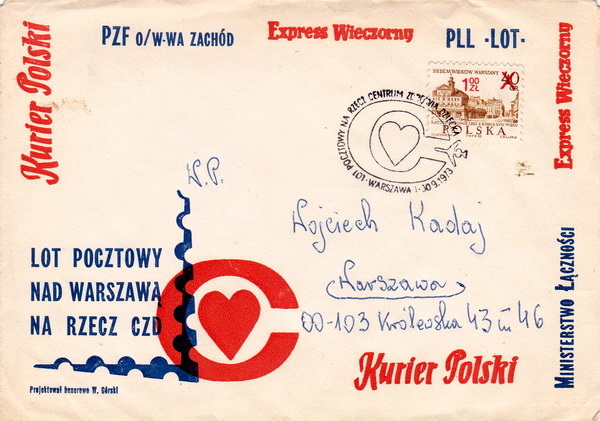 PZF O/W-WA ZACHÓD
Express Wieczorny
PLL -LOT-
Kurier Polski
Express Wieczorny
SIEDEM WIEKÓW WARSZAWY
40
1 00 ZŁ
POLSKA
POCZTOWY NA RZECZ CENTRUM ZDROWIA DZIECKA
LOT-WARSZAWA 1-30.9.1973
W.P.
Wojciech Kadaj
Warszawa
00-103 Królewska 43 m 46
LOT POCZTOWY
NAD WARSZAWĄ
NA RZECZ CZD
Projektował honorowo W. Górski
Kurier Polski
MINISTERSTWO ŁĄCZNOŚCI